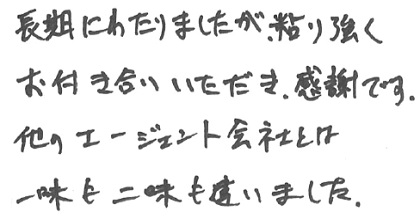 長期にわたりましたが、粘り強く
お付き合いいただき、感謝です。
他のエージェント会社とは
一味も二味も違いました。